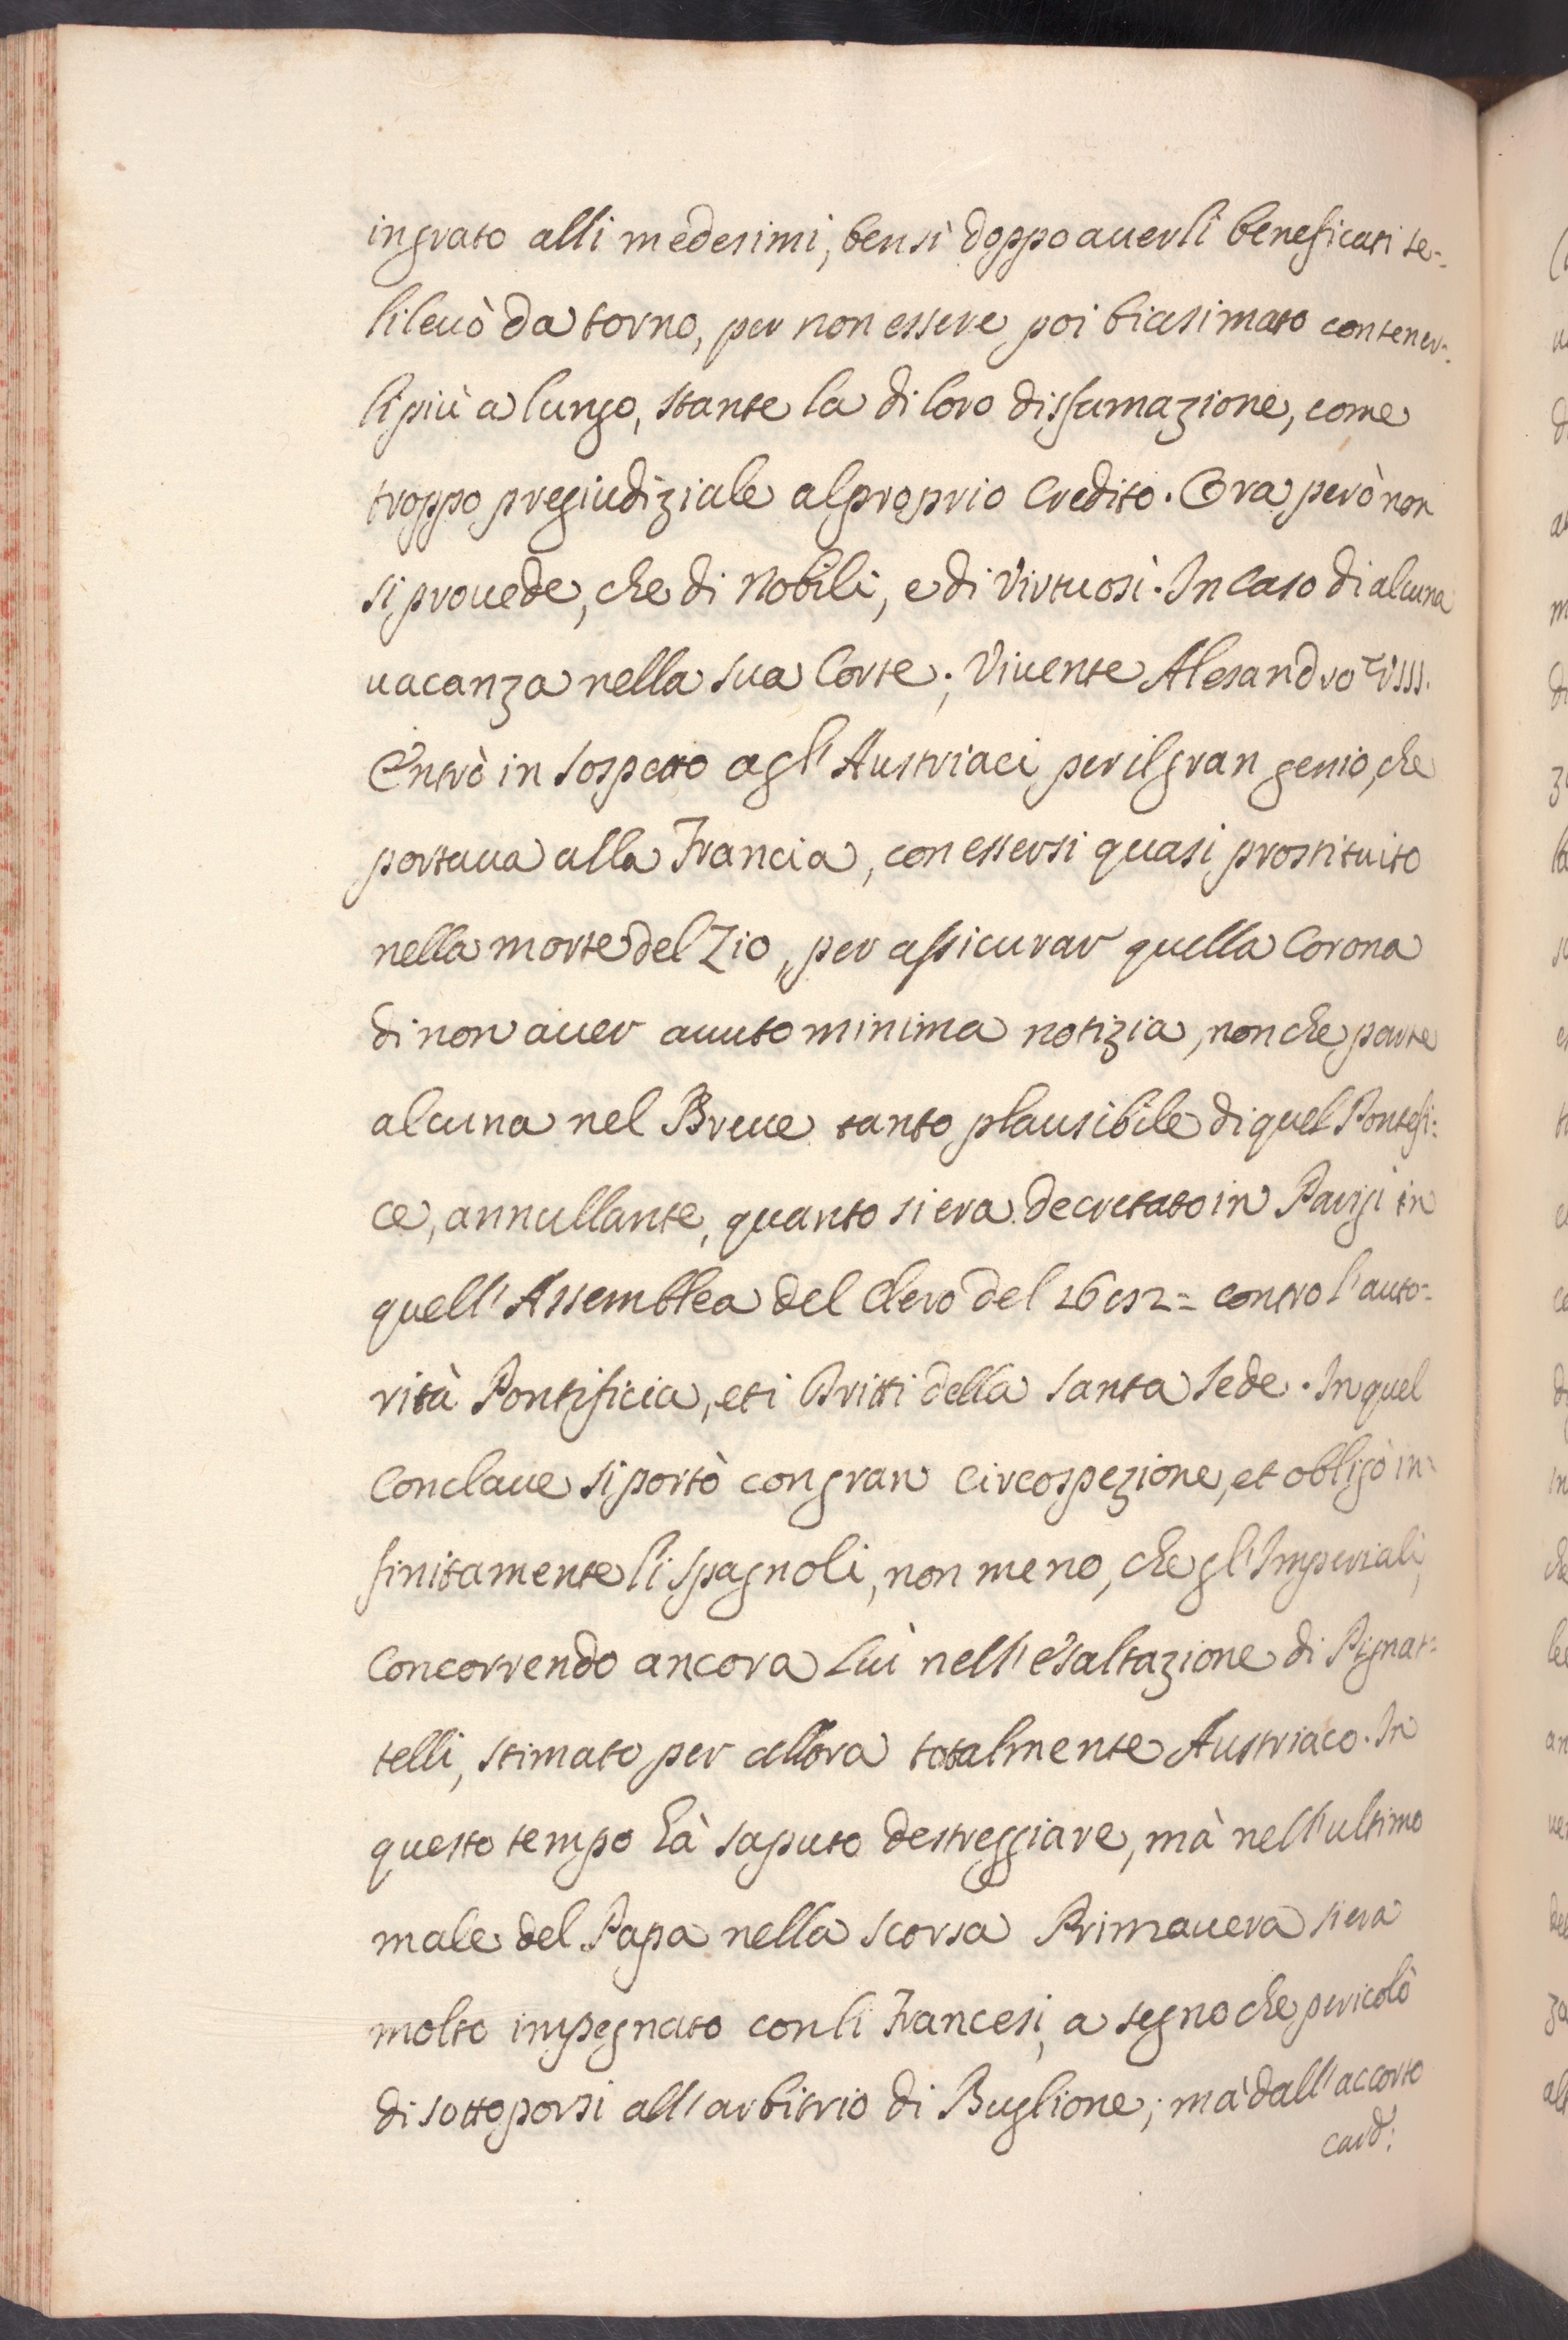 ingrato alli medesimi, bensì doppo auerli beneficati se-
li leuò da torno, per non essere poi biasimato con tener-
li più a lungo, stante la di loro disfamazione, come
troppo pregiudiziale al proprio Credito. Ora però non
si prouede, che di Nobili, e di Virtuosi. In Caso di alcuna
uacanza nella sua Corte; Viuente Alesandro VIII.
Entrò in Sospetto agl' Austriaci per il gran genio, che
portaua alla Francia, con essersi quasi prostituito
nella morte del Zio, per assicurar quella Corona
di non auer auuto minima notizia, non che parte
alcuna nel Breue tanto plausibile di quel Pontefi:
ce, annullante, quanto si era decretato in Parigi in
quell' Assemblea del Clero del 1682= contro l'auto=
rità Pontificia, et i Dritti della Santa Sede. In quel
Conclaue si portò con gran Circospezione, et obligò in=
finitamente li Spagnoli, non meno, che gl' Imperiali,
Concorrendo ancora Lui nell' esaltazione di Pignat=
telli, stimato per allora totalmente Austriaco. In
questo tempo hà saputo destreggiare, mà nell' ultimo
male del Papa nella scorsa Primauera si era
molto impegnato con li Francesi, a segno che pericolò
di sottoporsi all' arbitrio di Buglione; mà dall' accorto
Card: